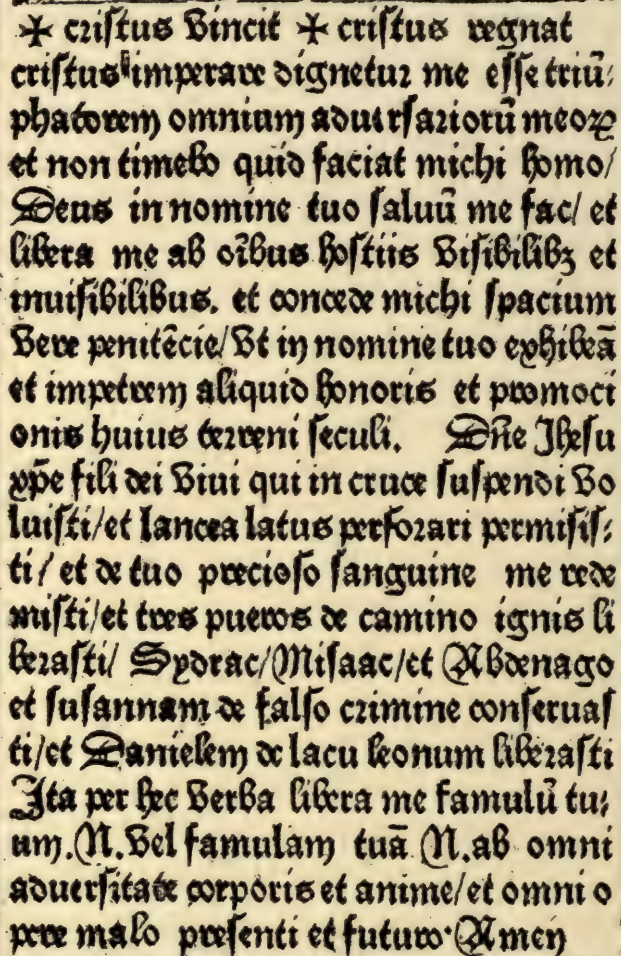 ✠ cristus vincit ✠ cristus regnat
cristus imperare dignetur me esse triū⸗
phatorem omnium aduersariorū meoꝝ
et non timebo quid faciat michi homo/
Deus in nomine tuo saluū me fac/ et
libera me ab oībus hostiis visibilibꝫ et
inuisibilibus. et concede michi spacium
vere penitēcie/ vt in nomine tuo exhibeā
et impetrem aliquid honoris et promoci
onis huius terreni seculi. Dn̄e Jhesu
xp̄e fili dei viui qui in cruce suspendi vo
luisti/et lancea latus perforari permisis⸗
ti/ et de tuo precioso sanguine me rede
misti/et tres pueros de camino ignis li
berasti/ Sydrac/Misaac/et Abdenago
et susannam de falso crimine conseruas
ti/et Danielem de lacu leonum liberasti
Ita per hec verba libera me famulū tu⸗
um.N.vel famulam tuā N.ab omni
aduersitate corporis et anime/et omni o
pere malo presenti et futuro·Amen